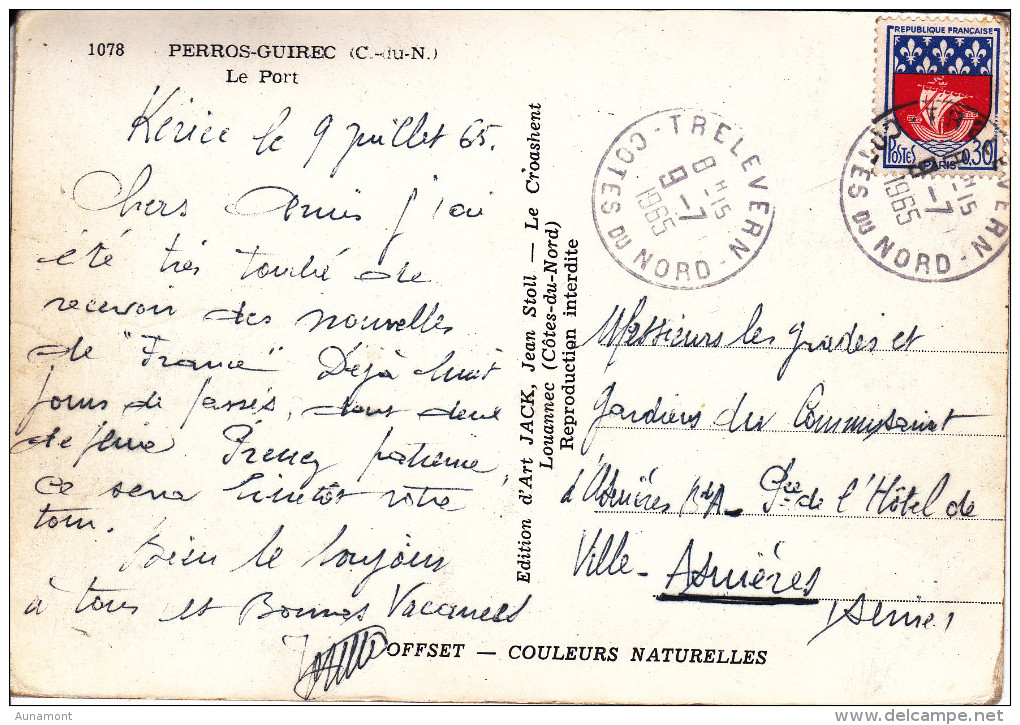 1078 PERROS-GUIREC (C.-du-N.)
Le Port
Kériec le 9 juillet 65.
Chers Amis j'ai
été très touché de
recevoir des nouvelles
de "France" Déjà huit
jours de passés, dont deux
de pluie. Prenez patience
ce sera bientôt votre
tour.
Bien le bonjour
à tous et Bonnes Vacances
OFFSET — COULEURS NATURELLES
Edition d'Art JACK, Jean Stoll — Le Croashent
Louannec (Côtes-du-Nord)
Reproduction interdite
REPUBLIQUE FRANCAISE
POSTES
PARIS
0,30
TRELEVERN
8 H15
9 -7
1965
COTES DU NORD
TRELEVERN
H15
-7
1965
COTES DU NORD
Messieurs les gradés et
Gardiens du Commissariat
d'Asnières Pce de l'Hôtel de
Ville - Asnières
(Seine)
Aunamont
www.delcampe.net